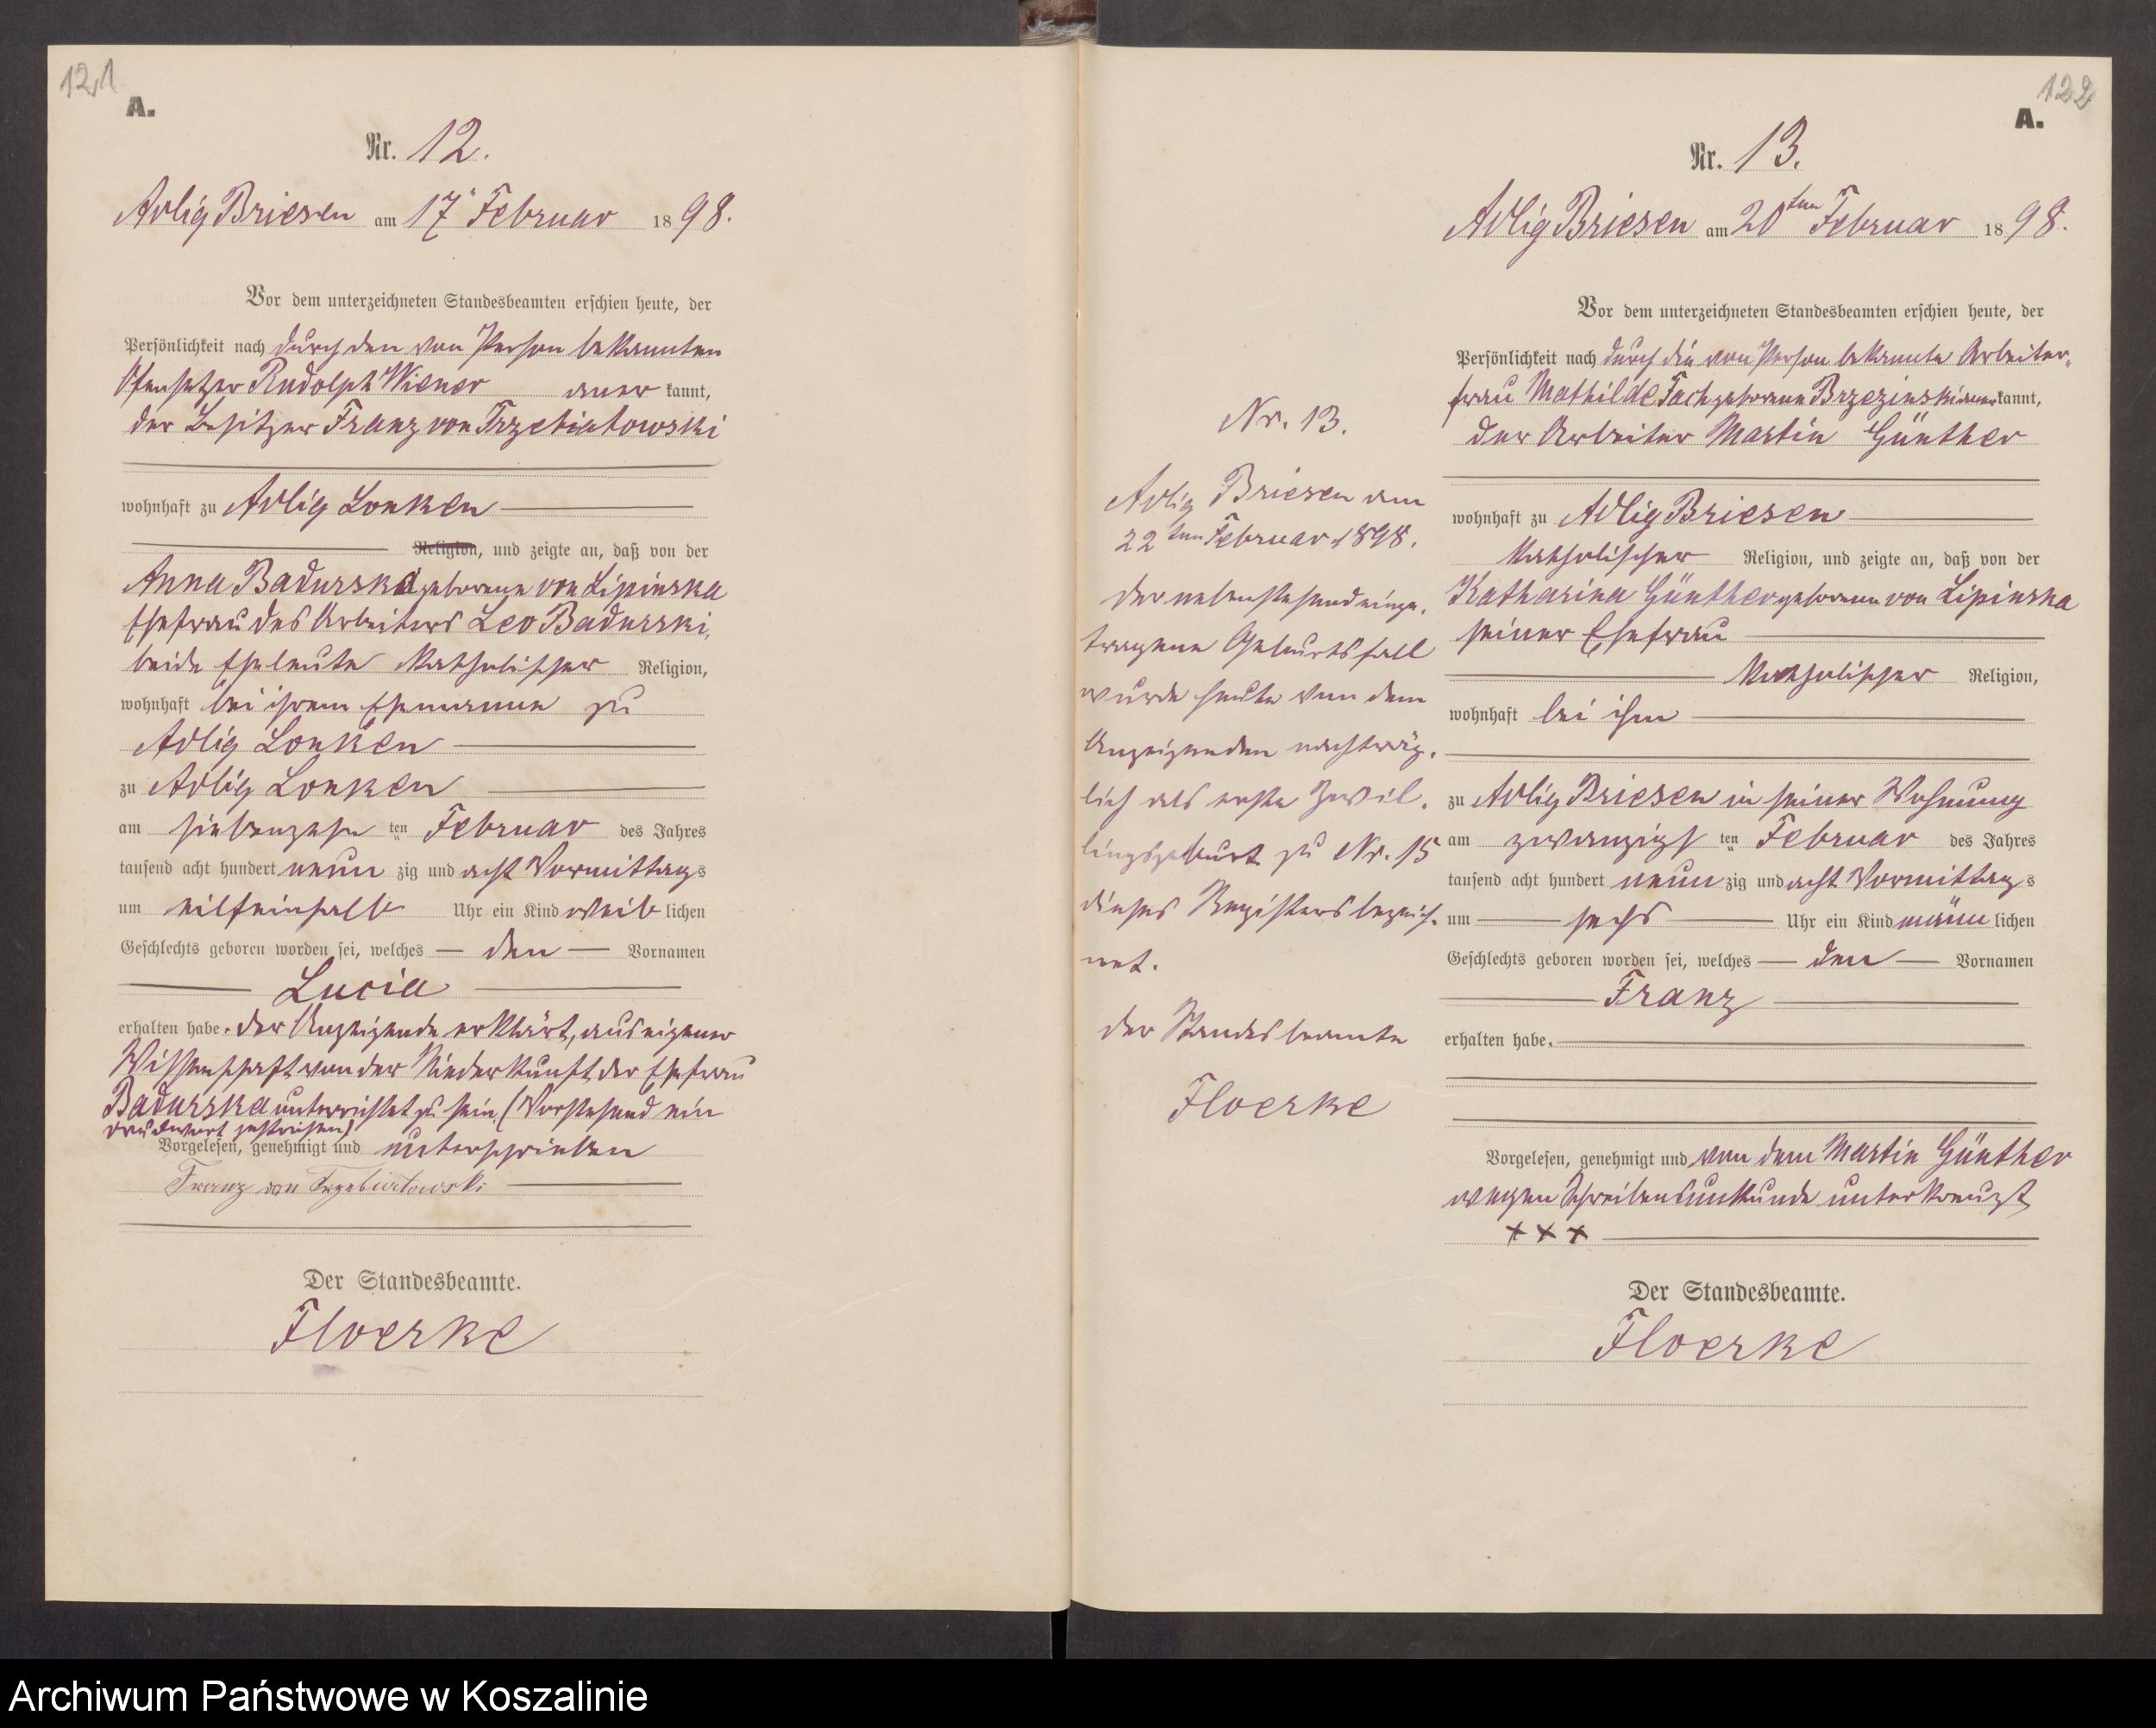 121
A.
Nr. 12.
Adlig Briesen am 17. Februar 1898.
Vor dem unterzeichneten Standesbeamten erschien heute, der
Persönlichkeit nach durch den von Person bekannten
Ofensetzer Rudolph Wiener aner kannt,
der Besitzer Franz von Trzebiatowski
wohnhaft zu Adlig Lonken
Religion, und zeigte an, daß von der
Anna Badurska geborene von Lipinska
Ehefrau des Arbeiters Leo Badurski,
beide Eheleute katholischer Religion,
wohnhaft bei ihrem Ehemanne zu
Adlig Lonken
zu Adlig Lonken
am siebenzehn ten Februar des Jahres
tausend acht hundert neun zig und acht Vormittags
um eilfeinhalb Uhr ein Kind weib lichen
Geschlechts geboren worden sei, welches den Vornamen
Lucia
erhalten habe. Der Anzeigende erklärt, aus eigener
Wissenschaft von der Niederkunft der Ehefrau
Badurska unterrichtet zu sein (Vorstehend ein
Druckwort gestrichen)
Vorgelesen, genehmigt und unterschrieben
Franz von Trzebiatowski
Der Standesbeamte.
Floerke
122
A.
Nr. 13.
Adlig Briesen am 20ten Februar 1898.
Vor dem unterzeichneten Standesbeamten erschien heute, der
Persönlichkeit nach durch die von Person bekannte Arbeiter-
frau Mathilde Fach geborene Brzezinski aner kannt,
der Arbeiter Martin Günther
wohnhaft zu Adlig Briesen
katholischer Religion, und zeigte an, daß von der
Katharina Günther geborene von Lipinska
seiner Ehefrau
katholischer Religion,
wohnhaft bei ihm
zu Adlig Briesen in seiner Wohnung
am zwanzigs ten Februar des Jahres
tausend acht hundert neun zig und acht Vormittags
um sechs Uhr ein Kind männ lichen
Geschlechts geboren worden sei, welches den Vornamen
Franz
erhalten habe.
Vorgelesen, genehmigt und von dem Martin Günther
wegen Schreibensunkunde unterkreuzt
+++
Der Standesbeamte.
Floerke
Nr. 13.
Adlig Briesen am
22ten Februar 1898.
Der nebenstehend einge-
tragene Geburtsfall
wurde heute von dem
Anzeigenden nachträg-
lich als erste Zwil-
lingsgeburt zu Nr. 15
dieses Registers bezeich-
net.
Der Standesbeamte
Floerke
Archiwum Państwowe w Koszalinie